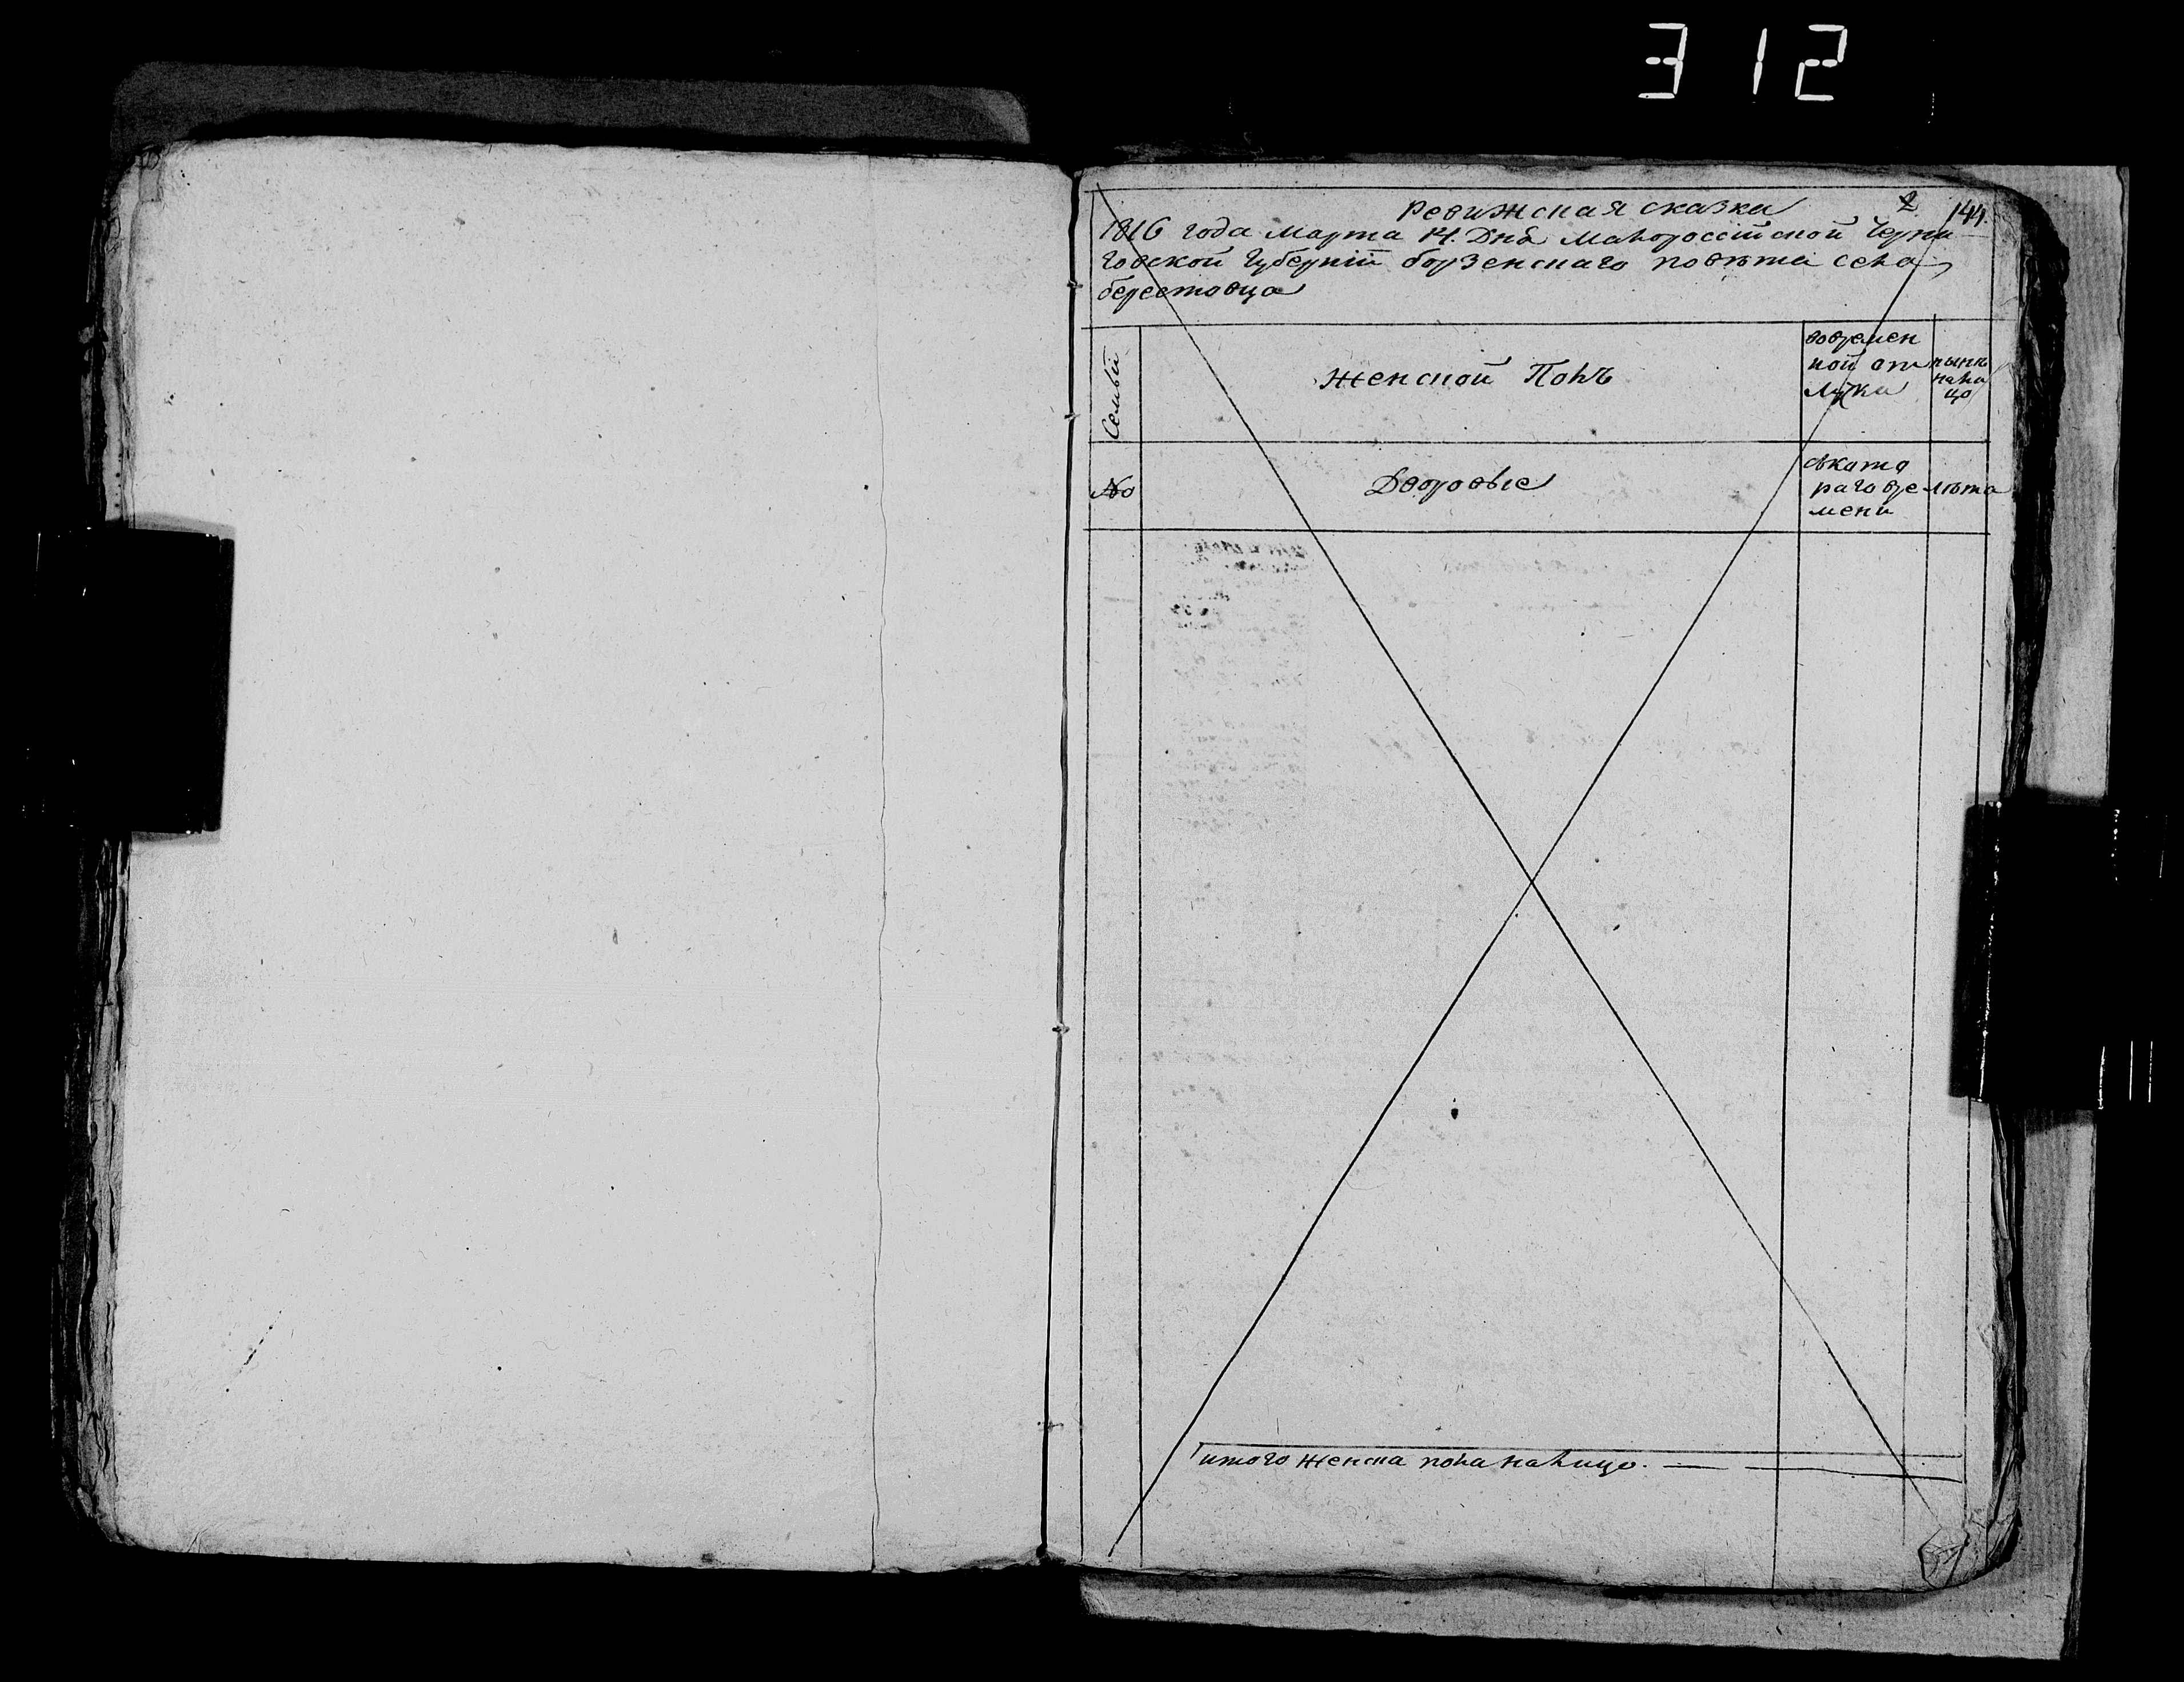 312
2 144
Ревижская сказка
1816 года марта 14. Дня малороссійской Черни
говской Губерніи борзенскаго повѣта села
берестовца
Семьи
женской Полъ
вовремен
ной от
лучки
нынѣ
нали
цо
№
Дворовые
скато
раго вре
мени
лѣта
итого женска пола налицо. —